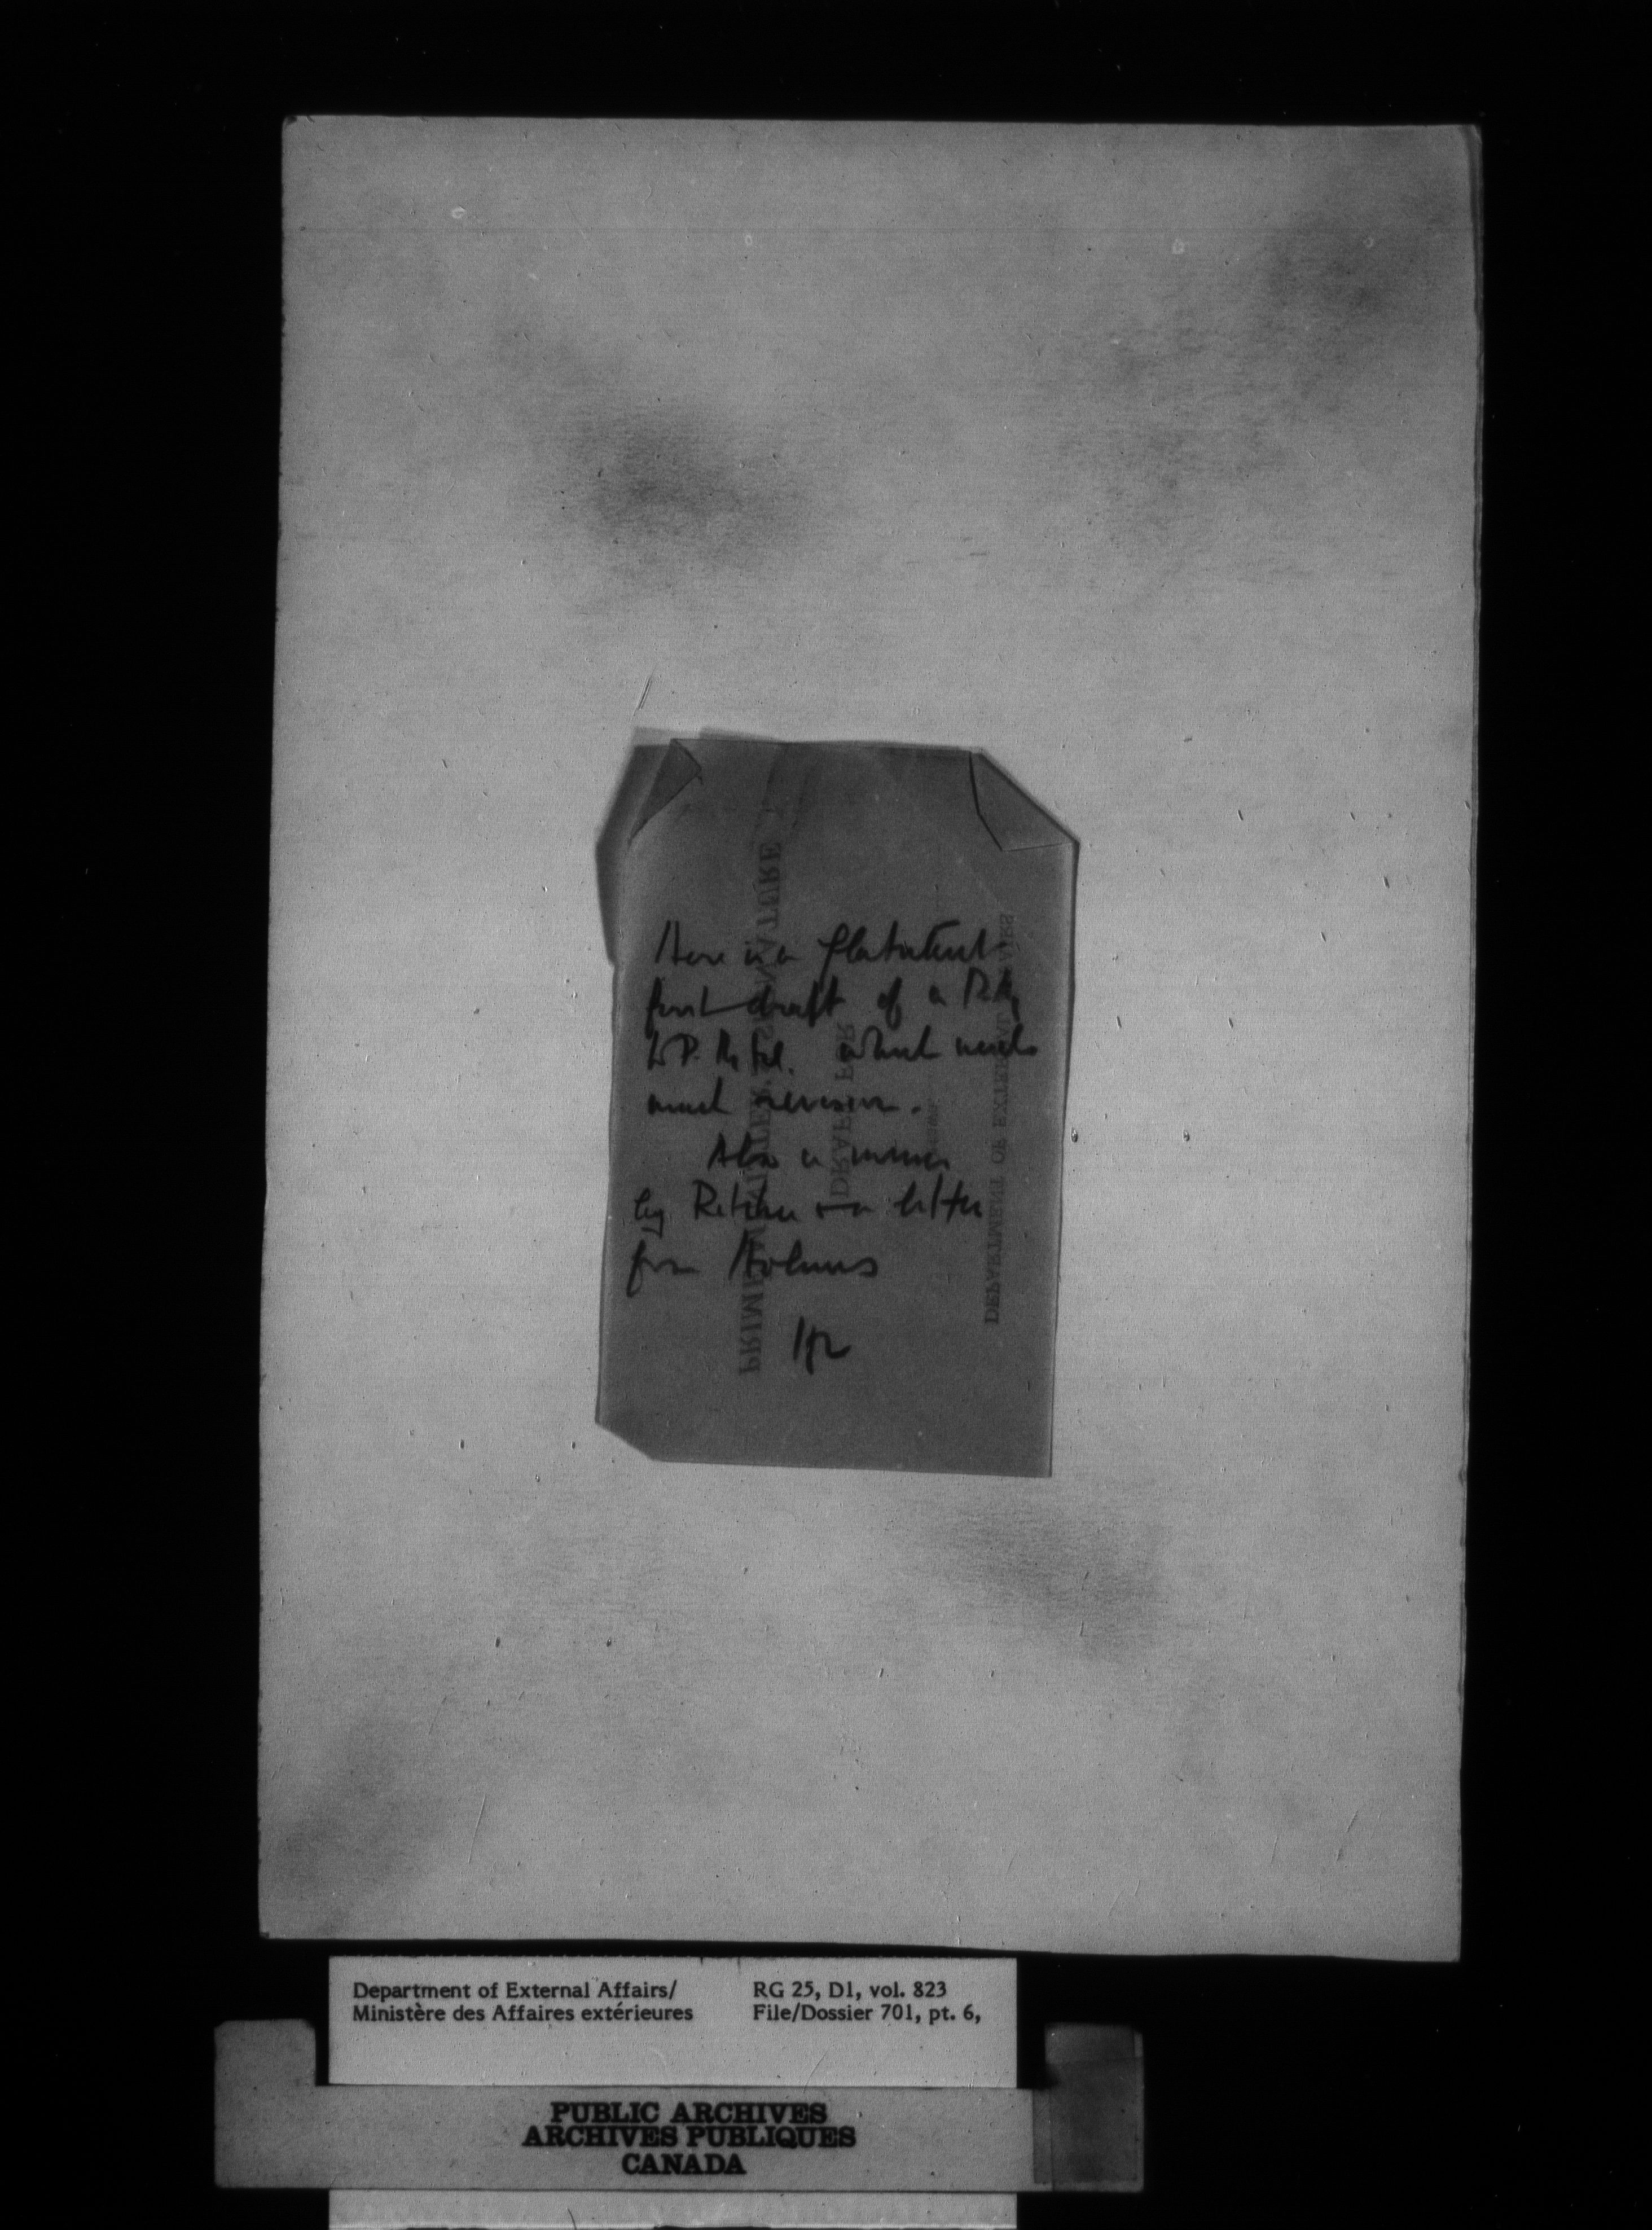 Here is a flatulent
first draft of a
which needs
much revision.
Also a memo
by Ritchie on a letter
from Holmes
DEPARTMENT OF EXTERNAL AFFAIRS
DRAFT FOR
PRIME MINISTER'S SIGNATURE
Department of External Affairs/
Ministère des Affaires extérieures
RG 25, D1, vol. 823
File/Dossier 701, pt. 6,
PUBLIC ARCHIVES
ARCHIVES PUBLIQUES
CANADA